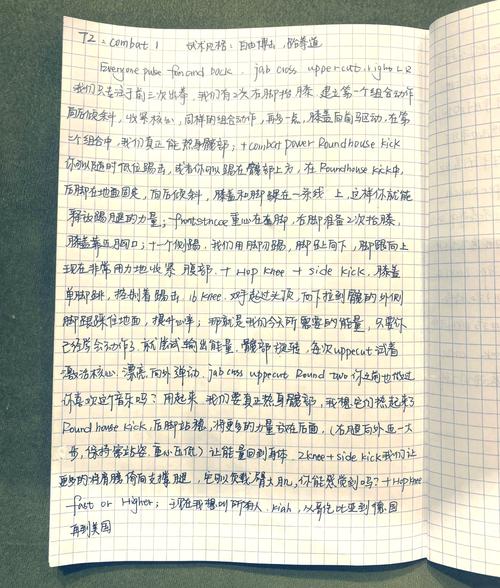 T2: combat 1 武术风格: 自由搏击, 跆拳道
Everyone pulse forward back. jab cross uppercut, right L R
我们只专注于前三次出拳, 我们有2次右脚抬膝. 建立第一个组合动作
向后倾斜, 收紧核心, 同样的组合动作, 再多一点, 膝盖向前驱动, 在第
二个组合中, 我们真正能热身髋部; + combat power Roundhouse kick
你可以随时低位踢击, 或者你可以踢在髋部上方, 在 Roundhouse kick中,
后脚在地面固定, 向后倾斜, 膝盖和脚踝在一条线上, 这样你就能
释放踢腿的力量; front stance 重心在左脚, 右脚准备2次抬膝,
膝盖靠近胸口; + 一个侧踢, 我们用脚刀踢, 脚趾向下, 脚跟向上
现在非常用力地收紧 腹部. + Hop knee + side kick, 膝盖
单脚跳, 控制着踢击. 16 knee. 双手超过头顶, 向下拉到髋的外侧
脚跟踩住地面, 提升心率; 那就是我们今天所需要的能量, 只要你
已经学会动作了, 就尝试输出能量. 髋部旋转, 每次uppercut 试着
激活核心. 漂亮, 向外弹动. jab cross uppercut Round two 你之前也做过
你喜欢这个音乐吗? 用起来, 我们要真正热身髋部, 我想它们热起来了
Roundhouse kick, 后脚站稳, 将更多的力量放在后面, (右腿向外迈一大
步, 保持宽站姿 重心压低) 让能量回到身体. 2knee + side kick 我们让
更多的将身体倾向支撑腿, 它别负载臀大肌, 你能感觉到吗? + Hop knee
fast or Higher; 现在我想叫所有人. kiah, 从哥伦比亚到德国
再到美国